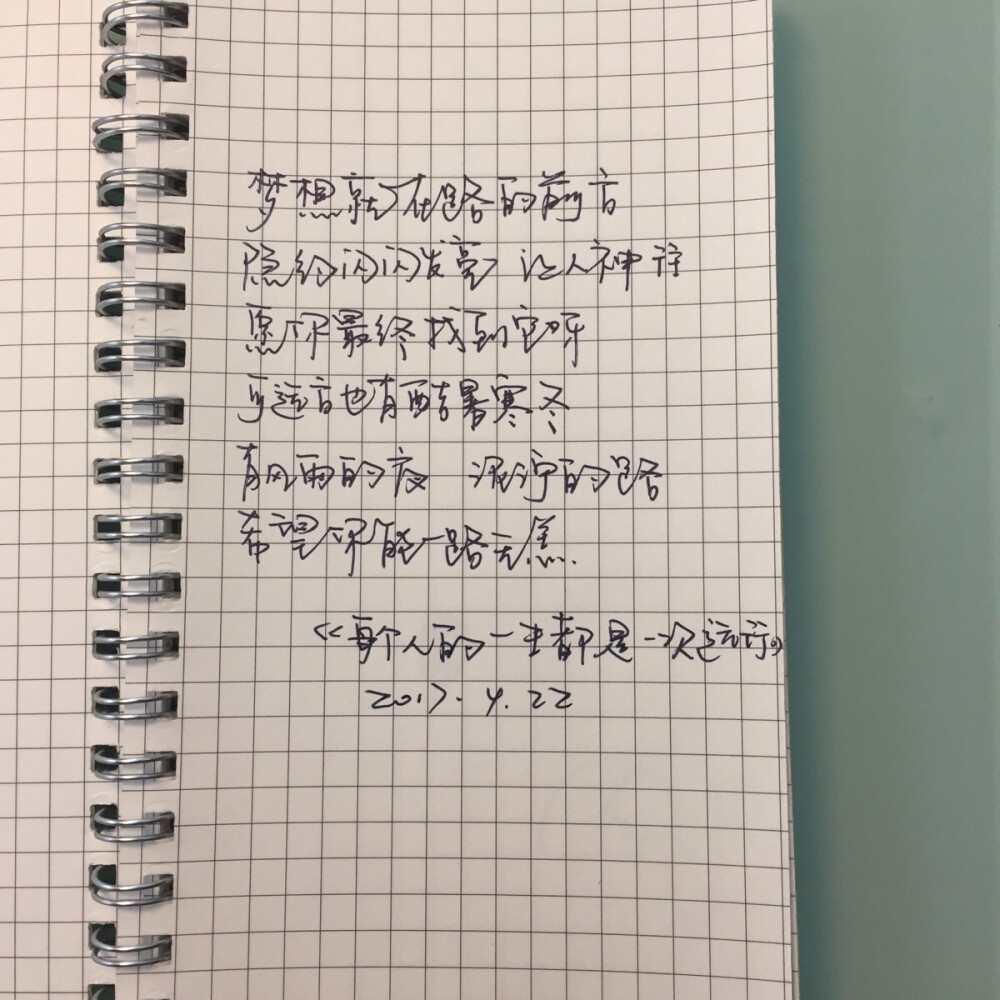 梦想就在路的前方
隐约闪闪发亮 让人神往
愿你最终找到它呀
可远方也有酷暑寒冬
有风雨的夜 泥泞的路
希望你能一路无恙.
《每个人的一生都是一次远行》
2017.4.22